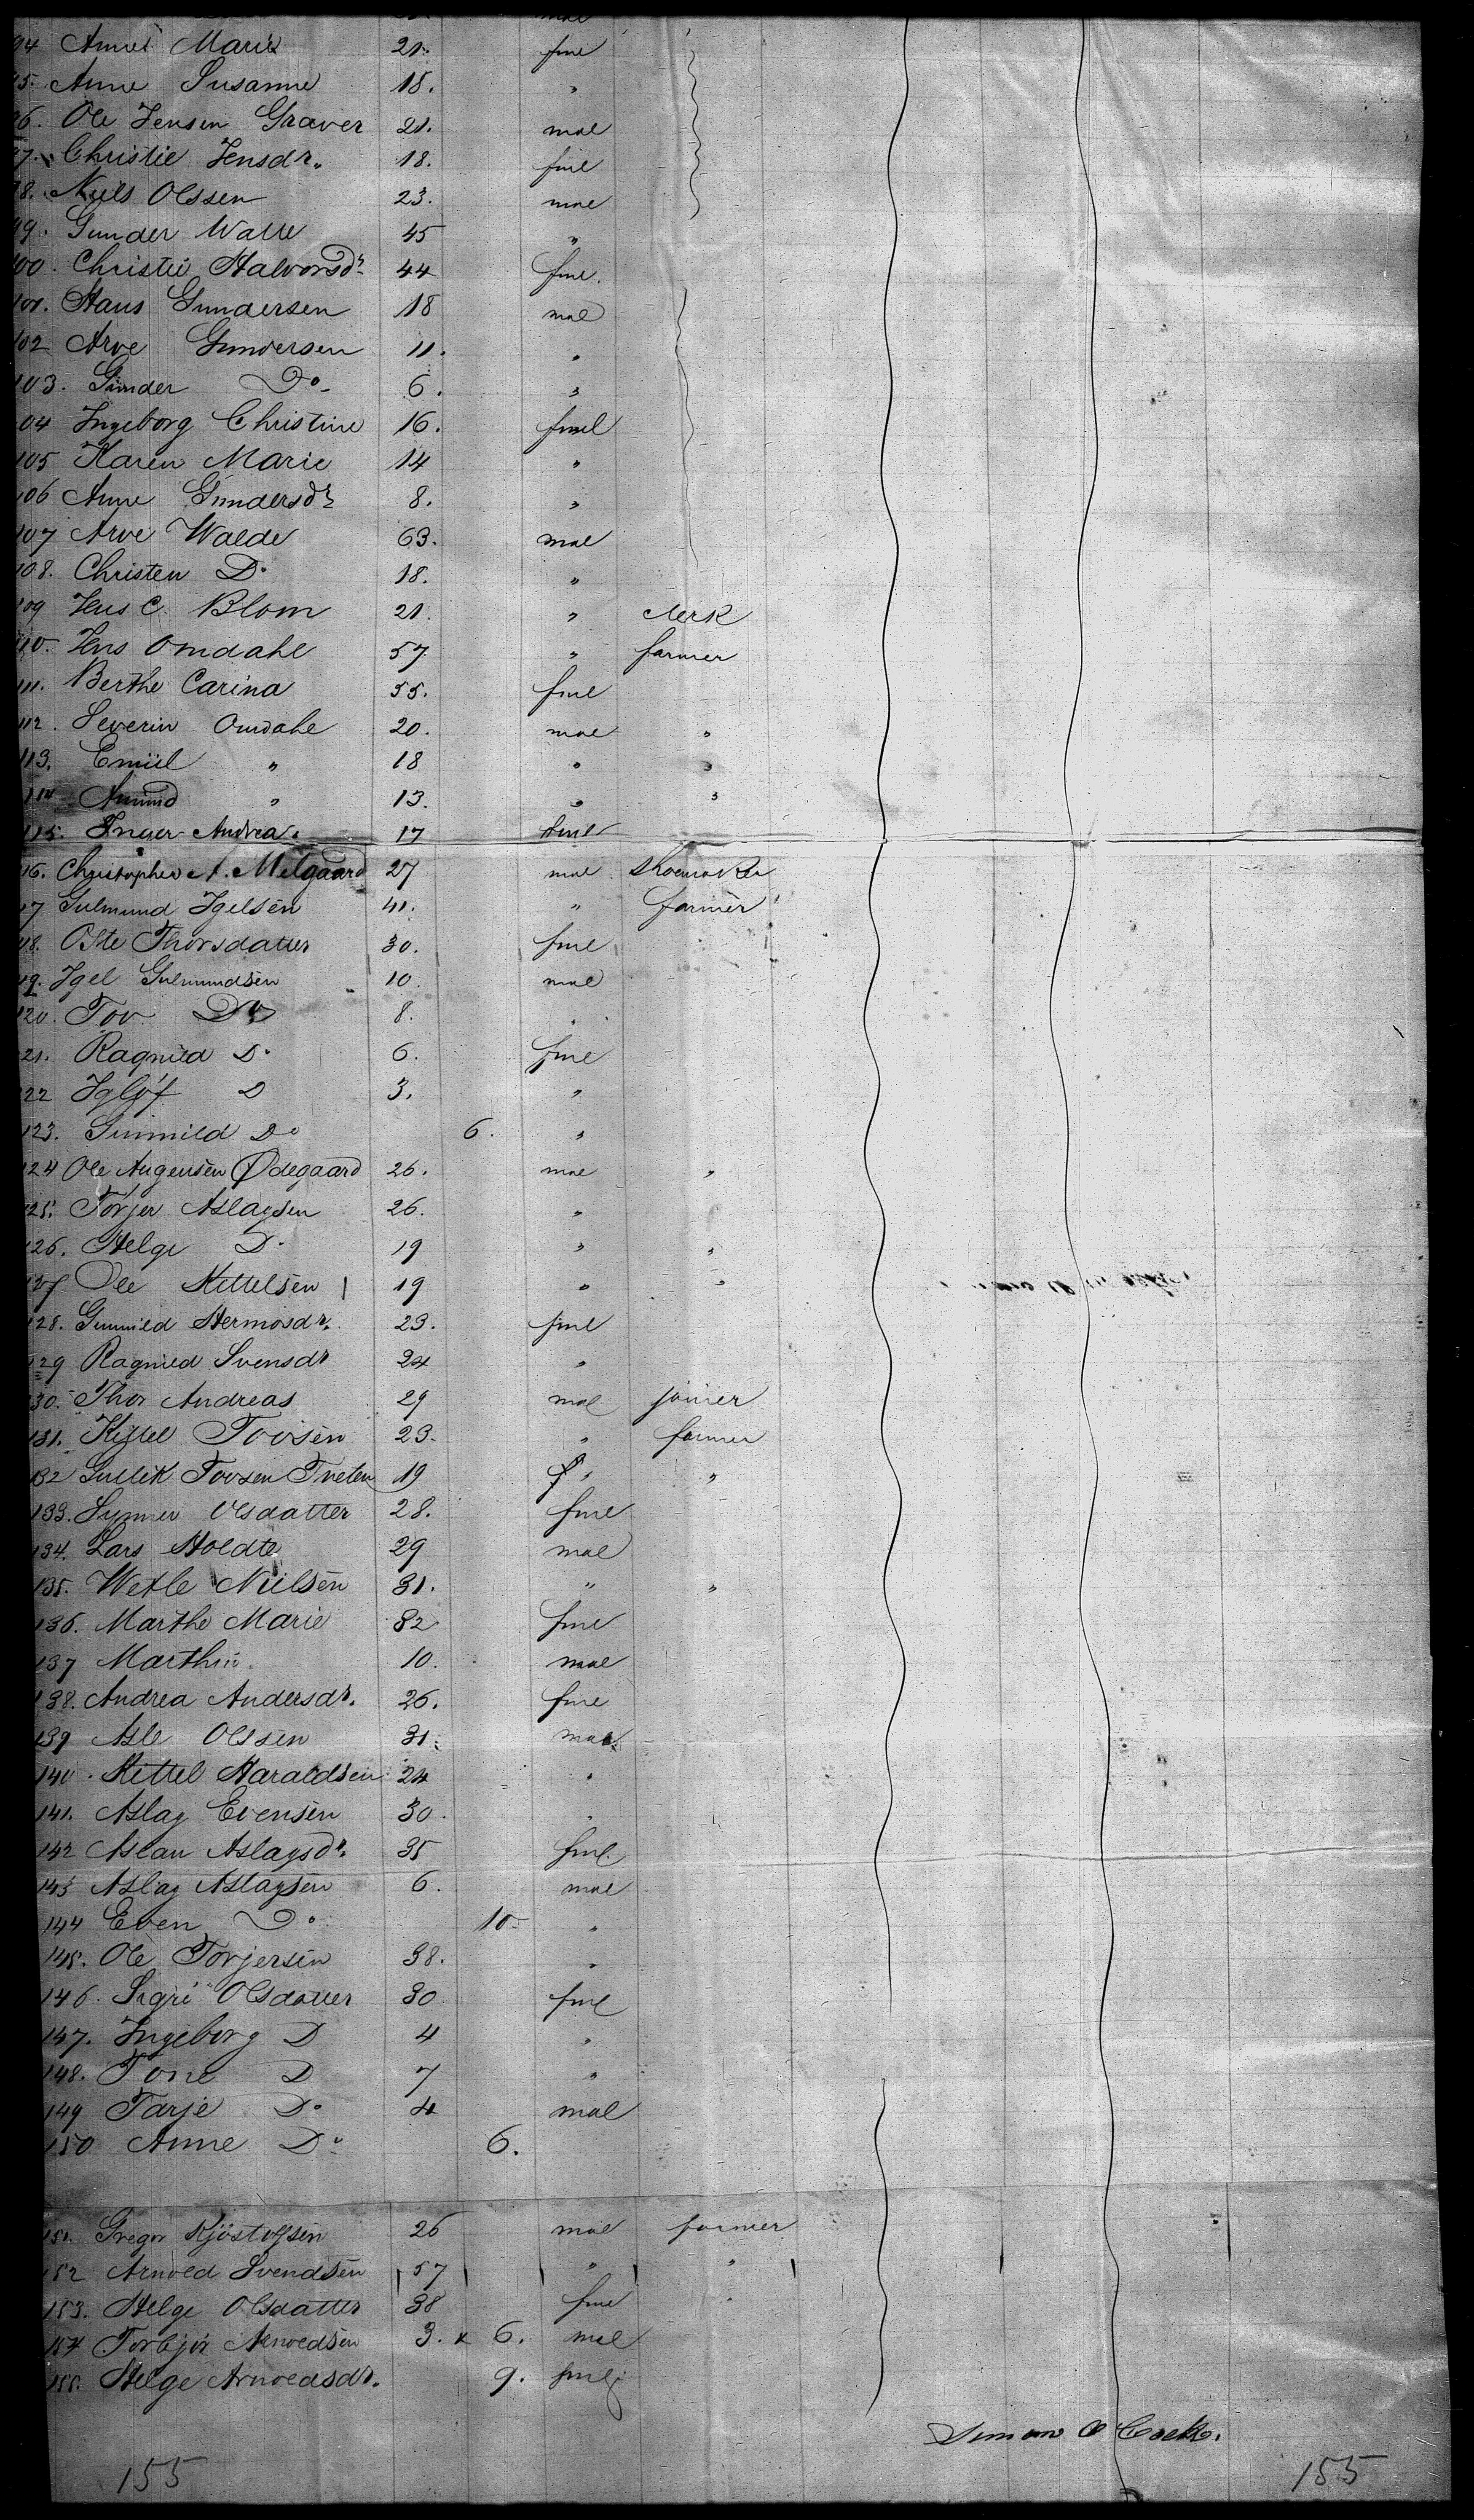 94 Anne Marie 21. fml
95. Anne Susanne 18. "
96. Ole Jensen Graver 21. mal
97. Christie Jensdr. 18. fml
98. Niels Olssen 23. mal
99. Gunder Walle 45 "
100. Christie Halvorsdr 44 fml.
101. Hans Gundersen 18 mal
102 Arve Gundersen 11. "
103. Gunder Do 6. "
104 Ingeborg Christine 16. fml
105 Karen Marie 14 "
106 Anne Gundersdr 8. "
107 Arve Walde 63. mal
108. Christen Do 18. "
109 Jens C. Blom 21. " clerk
110. Jens Omdahl 57 " farmer
111. Berthe Carina 55. fml
112. Severin Omdahl 20. mal "
113. Emiil " 18 " "
114 Amund " 13. " "
115. Inger Andrea. 17 fml
116. Christopher A. Melgaard 27 mal shoemaker
117 Gulmund Igelsen 41. " farmer
118. Oste Thorsdatter 30. fml
119. Igel Gulmundsen 10. mal
120. Tov Do 8. "
121. Ragnild Do 6. fml
122 Igløf D 3. "
123. Gunnild Do 6. "
124 Ole Augensen Ødegaard 26. mal "
125. Torjer Aslagsen 26. " "
126. Helge Do 19 " "
127 Ole Kettelsen 19 " "
128. Gunnild Hermosdr. 23. fml
129 Ragnild Svensdr 24 "
130. Thor Andreas 29 mal joiner
131. Kittel Tovsen 23. " farmer
132 Gullik Tovsen Tveten 19 " "
133. Synner Olsdatter 28. fml
134. Lars Holdte 29 mal
135. Wetle Nielsen 31. " "
136. Marthe Marie 32 fml
137 Marthin. 10. mal
138. Andrea Andersdr. 26. fml
139 Asle Olssen 31. mal
140. Kettel Haraldsen 24 "
141. Aslag Evensen 30. "
142 Aslau Aslagsdr. 35 fml.
143 Aslag Aslagsen 6. mal
144 Even Do 10 "
145. Ole Torjersen 38. "
146. Sigri Olsdatter 30 fml
147. Ingeborg D 4 "
148. Tone D 7 "
149 Tarje Do 4 mal
150 Anne Do 6.
151. Gregor Kjøstolfsen 26 mal farmer
152 Arnold Svendsen 57 " "
153. Helge Olsdatter 38 fml
154 Torbjør Arnoldsen 3. x 6. mal
155. Helge Arnoldsdr. 9. fml
155 155